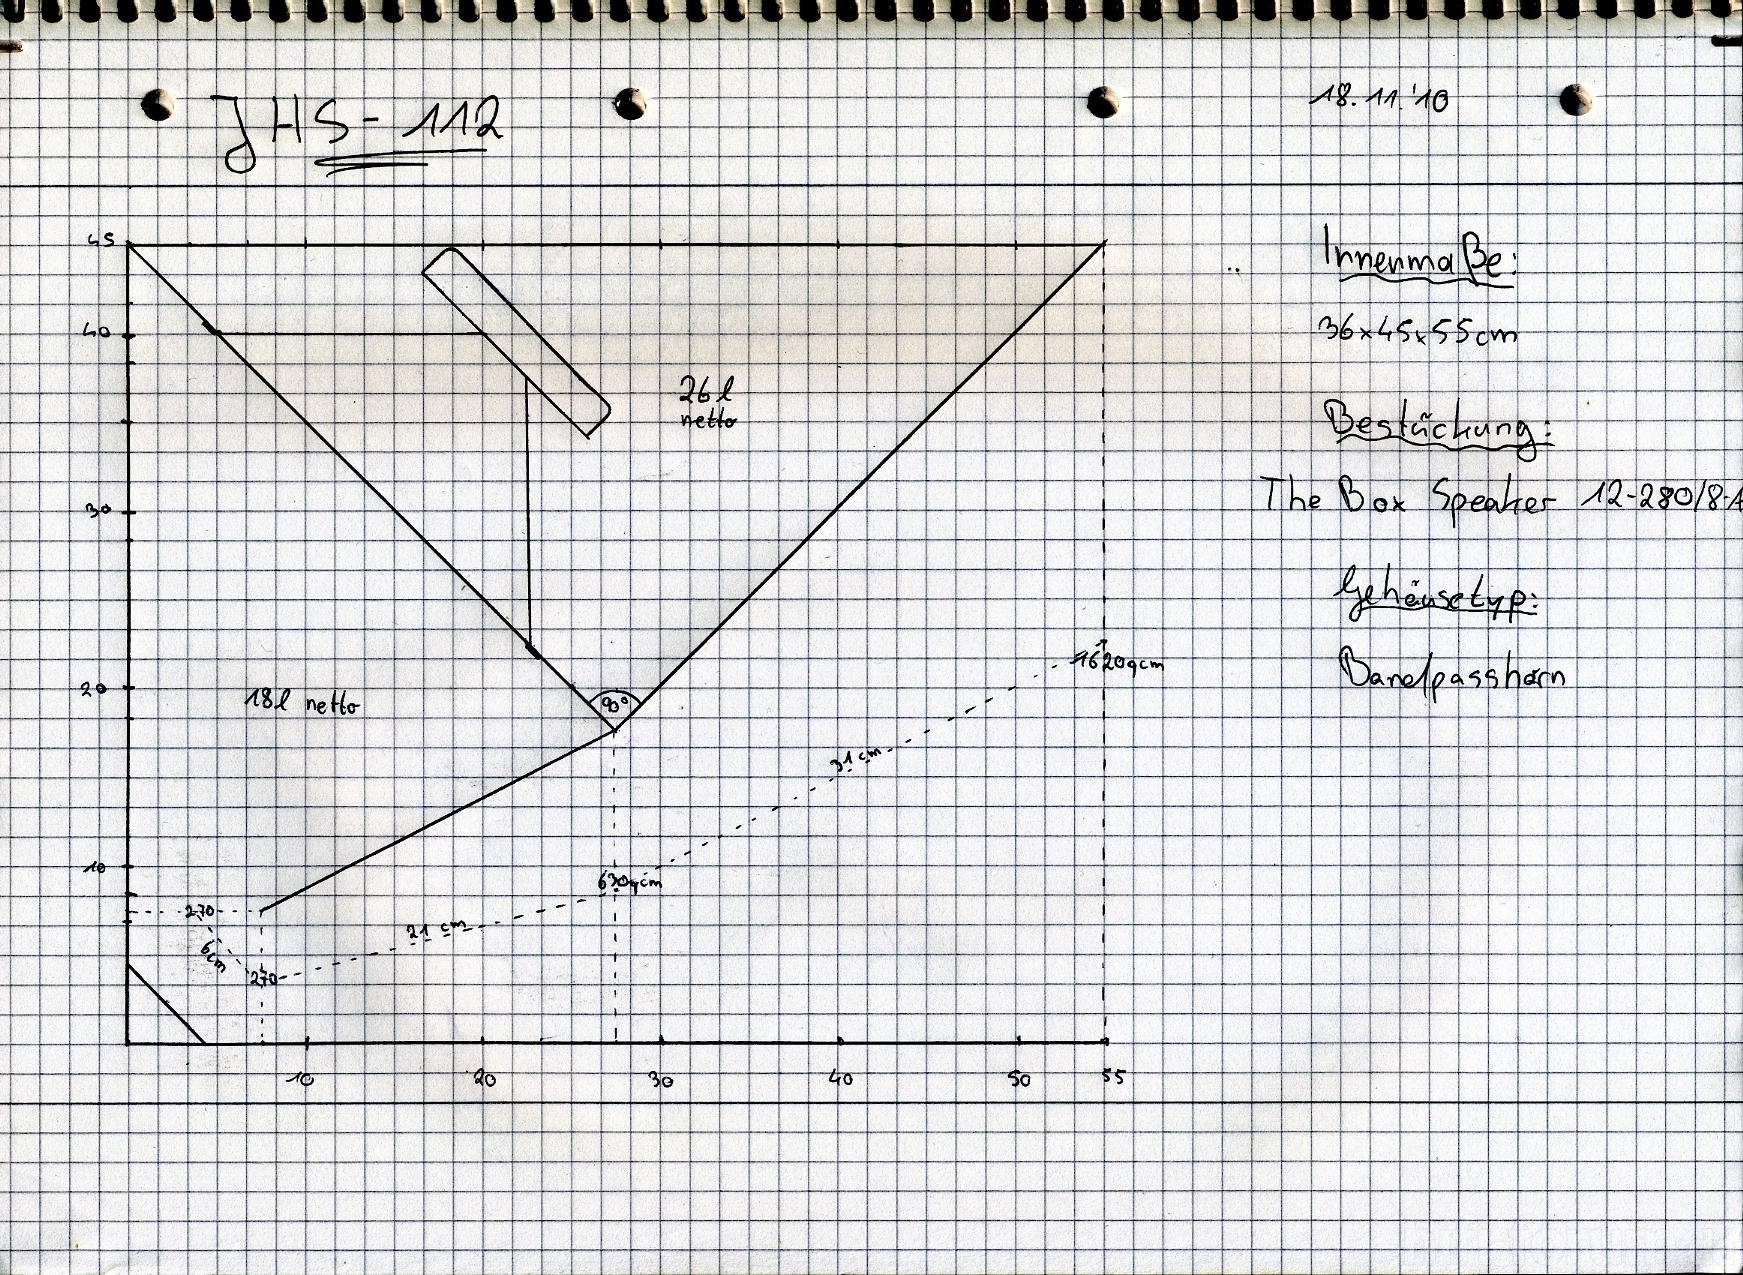 JHS-112
18.11.'10
45
40
30
20
10
10
20
30
40
50
55
26l
netto
18l netto
90°
1620qcm
31cm
630qcm
21 cm
270
6cm
270
Innenmaße:
36x45x55cm
Bestückung:
The Box Speaker 12-280/8-A
Gehäusetyp:
Bandpasshorn